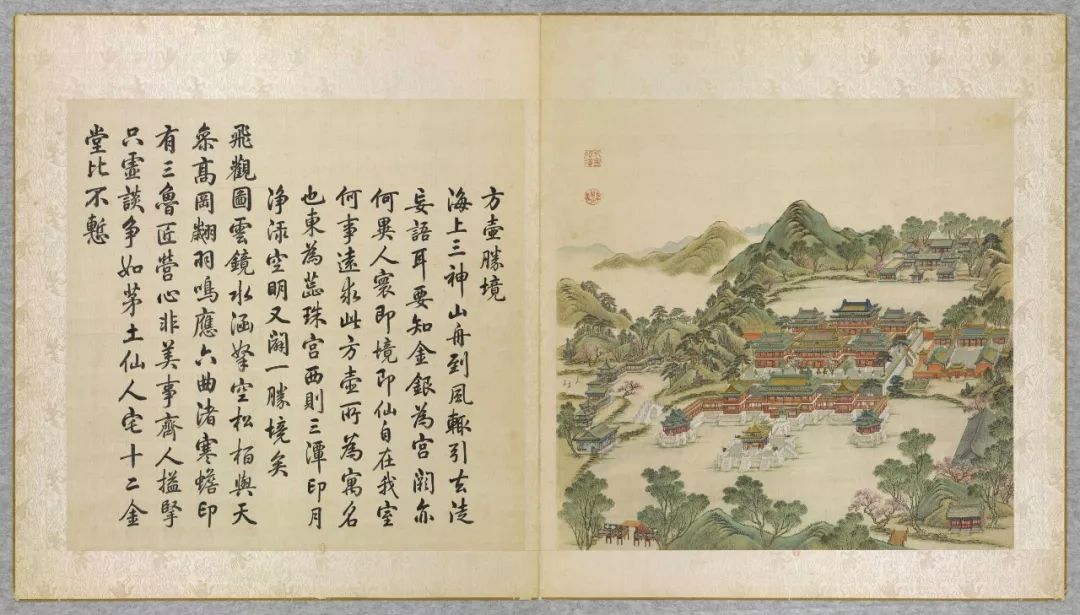 方壺勝境
海上三神山舟到風輒引去徒
妄語耳要知金銀為宮闕亦
何異人寰即境即仙自在我室
何事遠求此方壺所為寓名
也東為蕊珠宮西則三潭印月
淨渌空明又闢一勝境矣
飛觀圖雲鏡水涵拏空松栢與天
叅髙岡翽羽鳴應六曲渚寒蟾印
有三魯匠營心非美事齊人搤掔
只虛談争如茅土仙人宅十二金
堂比不慙